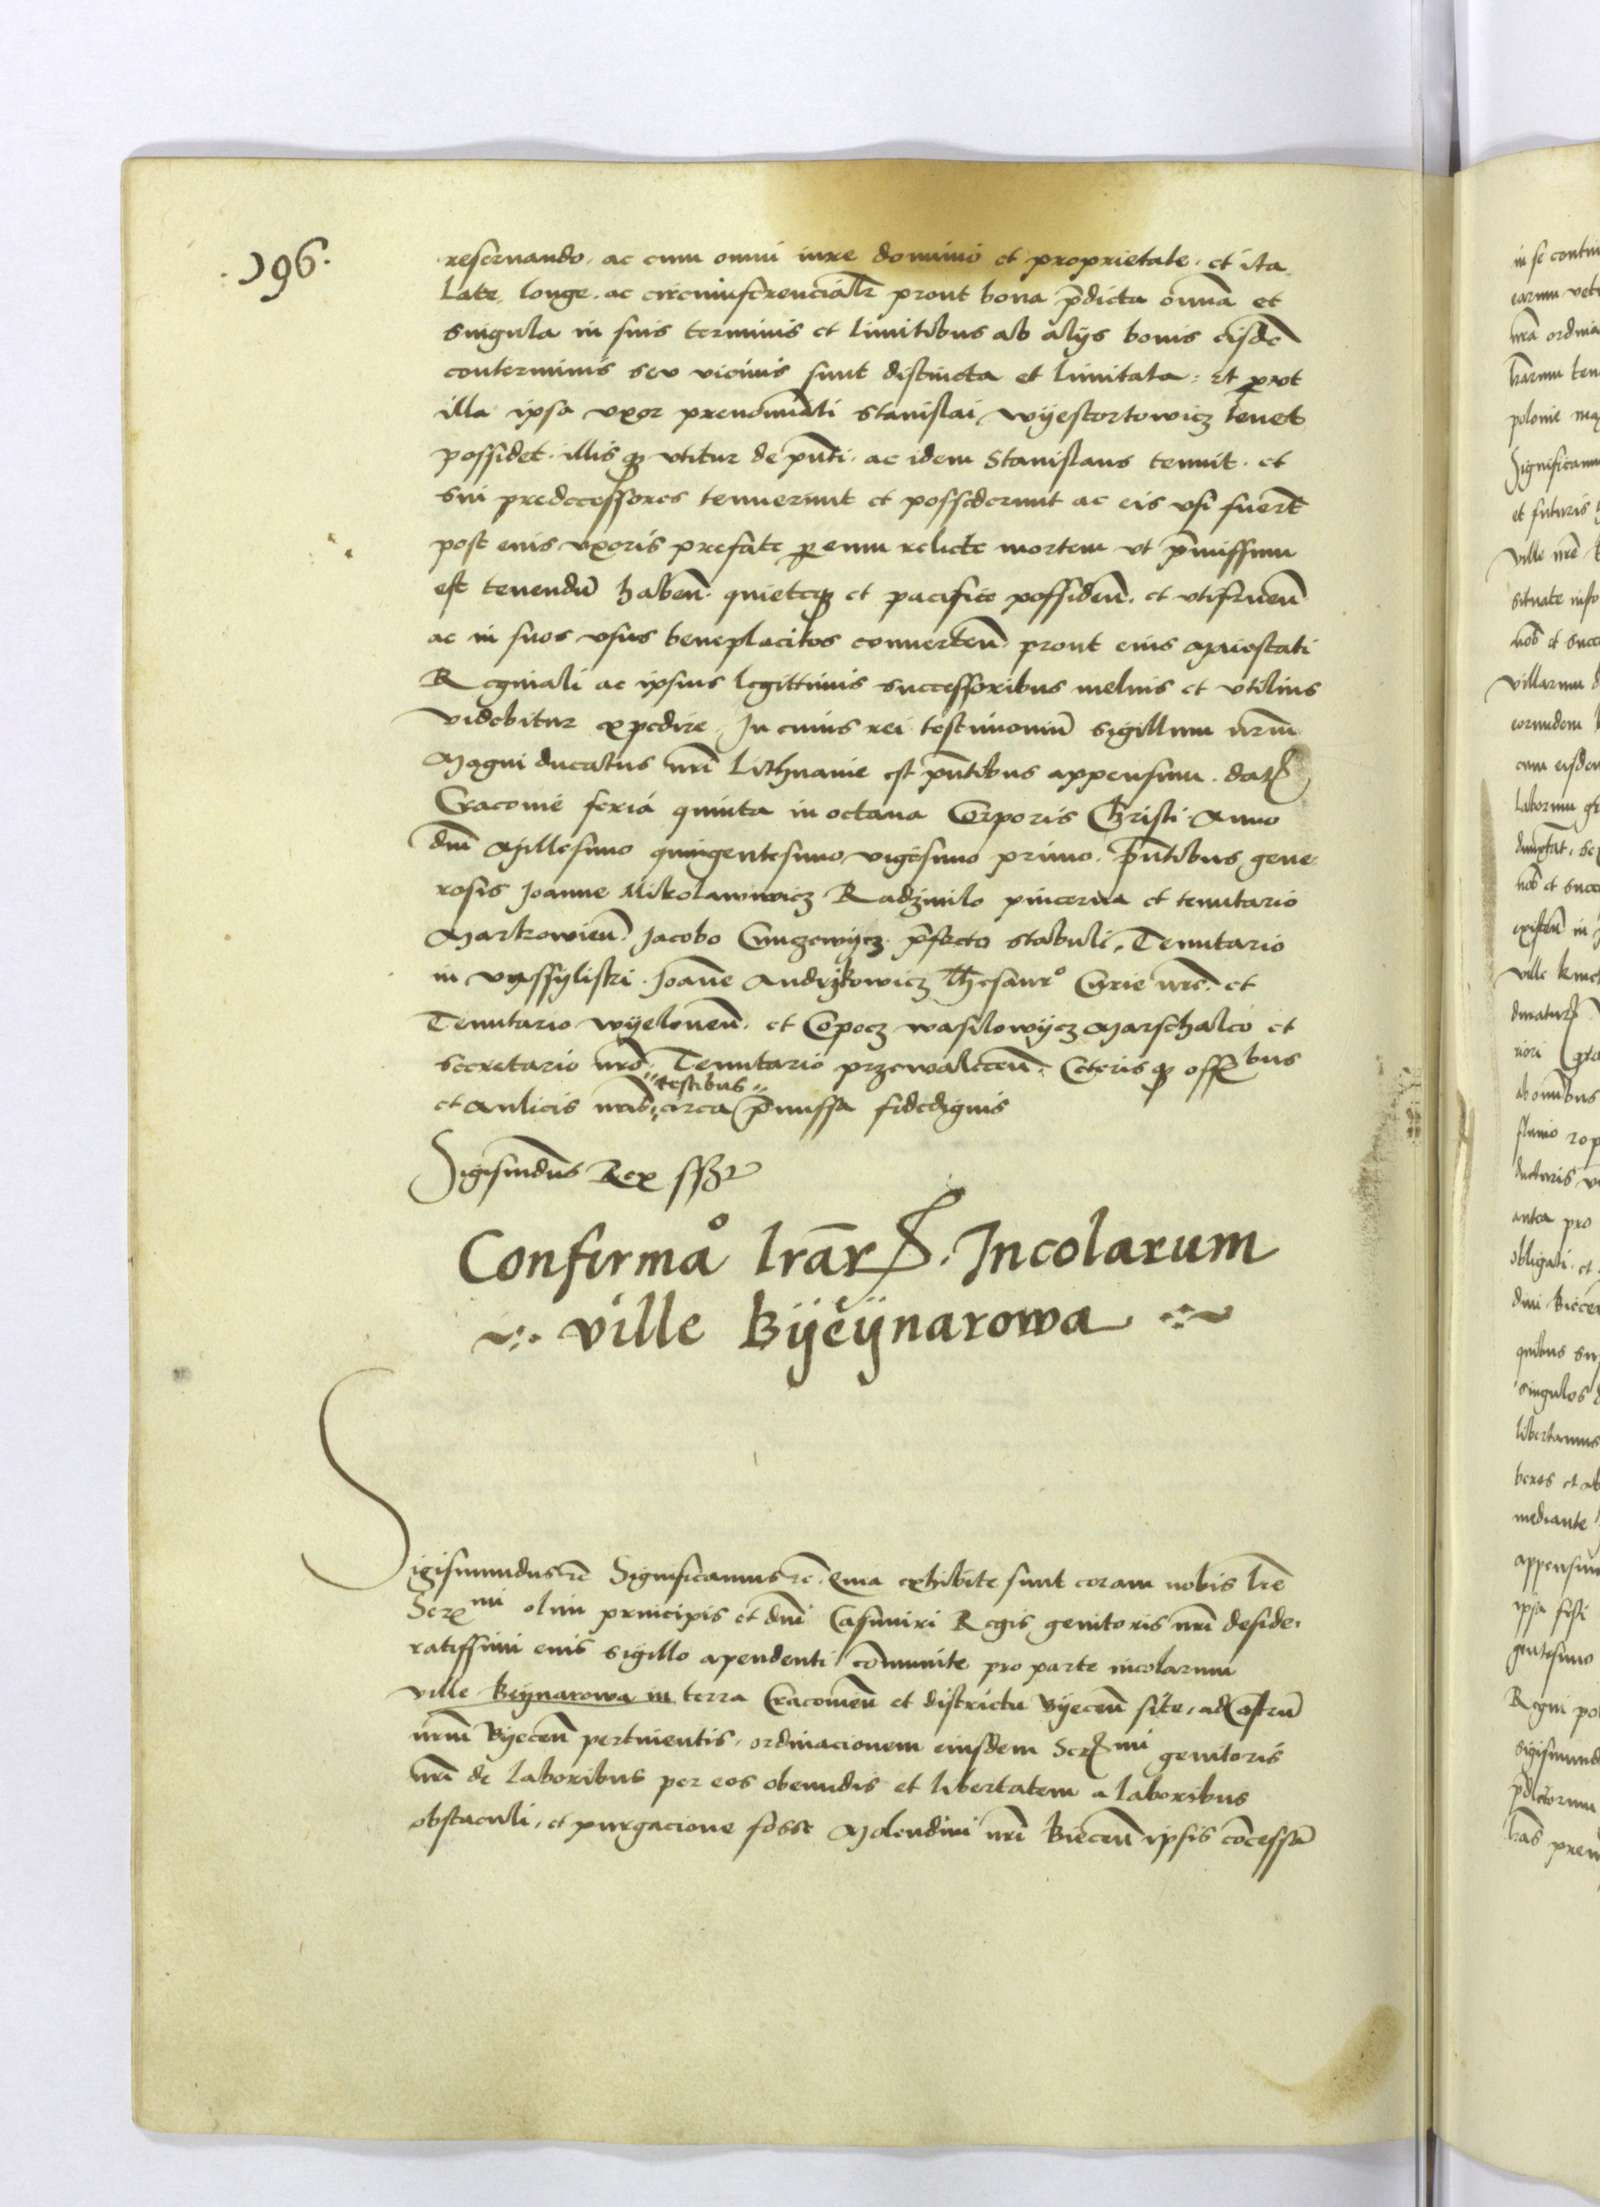 .196.
reservando. ac cum omni iure dominio et proprietate. et ita
Late, longe. ac circumferencialr prout bona p̄dicta omīa et
singula in suis terminis et limitibus ab alijs bonis eisdē
conterminis seu vicinis sunt distincta et limitata: et prout
illa ipsa vxor prenomīati Stanislai Wyestortowicz tenet
possidet. illisqȝ vtitur de pn̄ti. ac idem Stanislaus tenuit. et
sui predecessores tenuerunt et possederunt ac eis vsi fuerūt
post eius vxoris prefate per eum relicte mortem vt p̄missum
est tenendū habēn. quieteqȝ et pacifice possidēn. et vtifruēn
ac in suos vsus beneplacitos convertēn. prout eius Maiestati
Reginali ac ipsius legittimis successoribus melius et vtilius
videbitur expedire. In cuius rei testimoniū sigillum nrm̄
Magni ducatus nrī Lithuanie est pn̄tibus appensum. dat
Cracovie feria quinta in octava Corporis Christi. Anno
dnī Millesimo quingentesimo vigesimo primo. pn̄tibus gene
rosis Joanne Mikolawiwicz Radziwilo pincerna et tenutario
Markowiēn. Jacobo Cunczewycz p̄fecto stabuli, Tenutario
in Vyssylistri. Joāne Andrzkowicz Thesaurº Curie nrē. et
Tenutario Wyelonēn. et Copocz Wasilowycz Marschalco et
secretario nrō. Tenutario przewalcēn. Ceterisqȝ offbus
et Aulicis nrīs "testibus" circa p̄missa fidedignis
Sigismūdus Rex sst
Confirmaº lrār. Incolarum
ville Byeynarowa
Sigismundus rc Significamus rc. quia exhibite sunt coram nobis lrē
Sermi olim principis et dnī Casimiri Regis genitoris nrī deside
ratissimi eius sigillo apendenti cōmunite pro parte incolarum
ville Beynarowa in terra Cracoviēn et districtu Byecēn site, ad castrū
nrm̄ Byecēn pertinentis, ordinacionem eiusdem Sermi genitoris
nrī de laboribus per eos obeundis et libertatem a laboribus
obstaculi, et purgacione fosse Molendini nrī Biecēn ipsis cōcessā